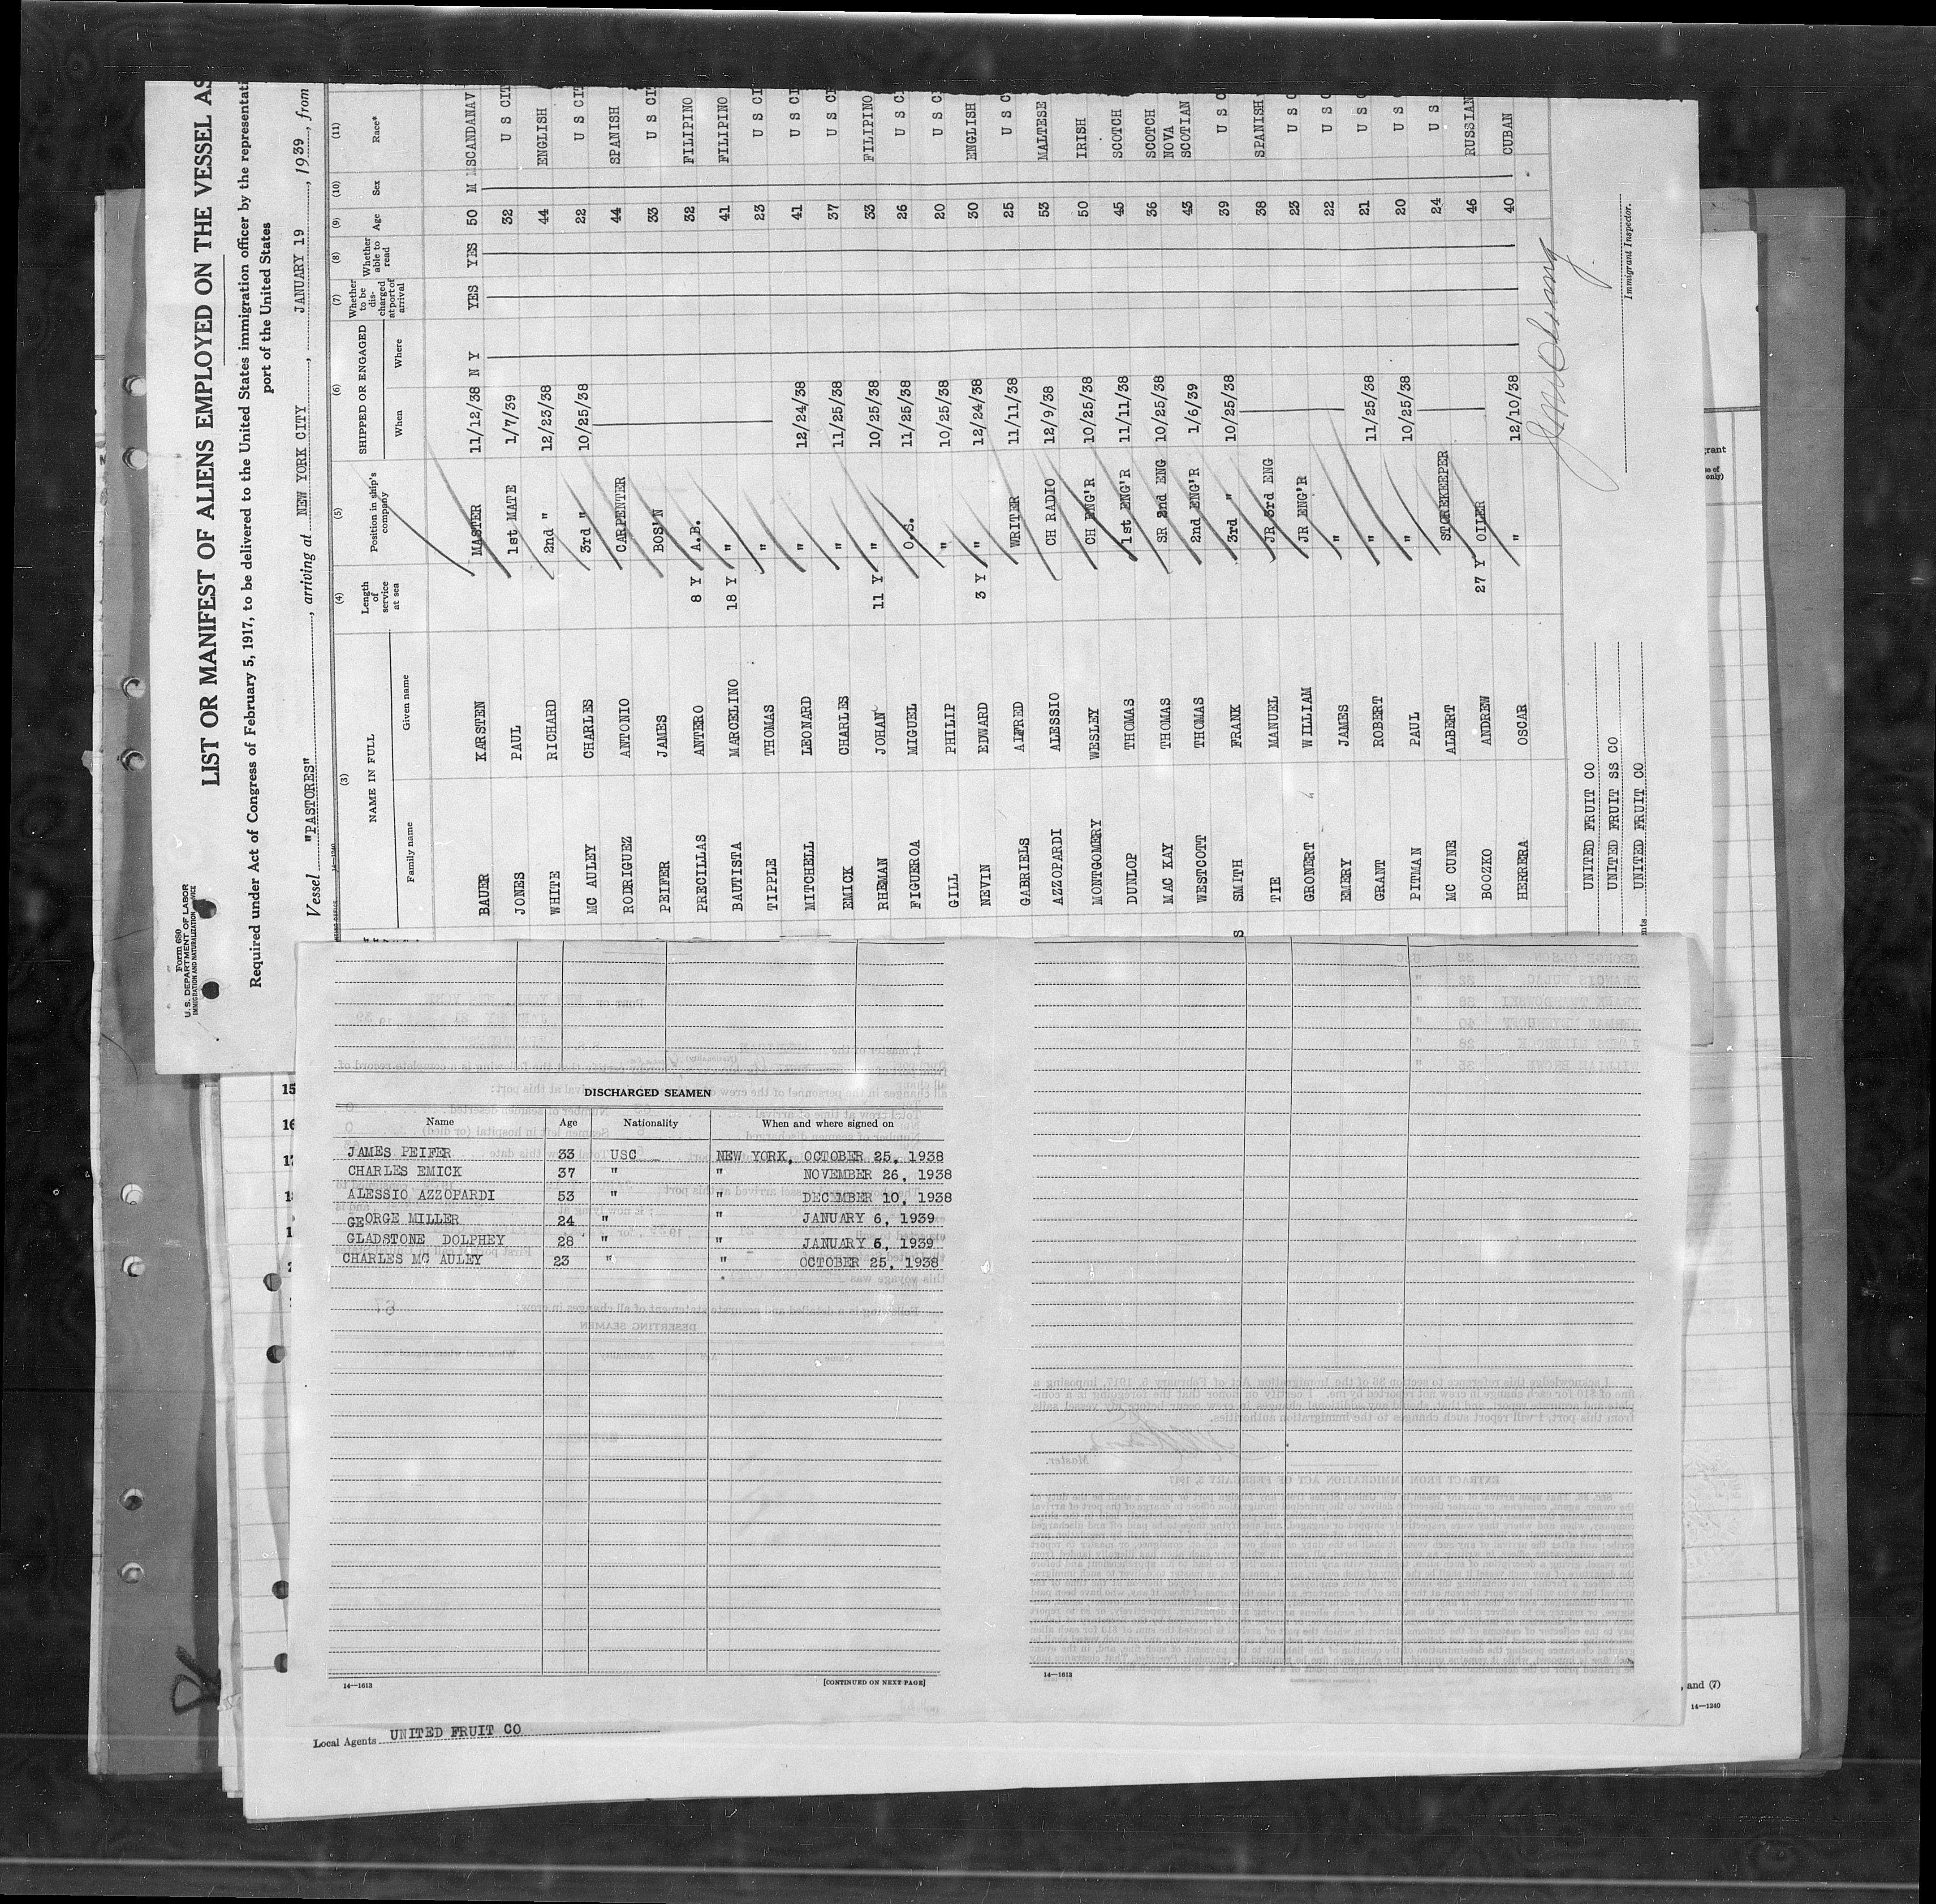 Form 680
U. S. DEPARTMENT OF LABOR
IMMIGRATION AND NATURALIZATION SERVICE
LIST OR MANIFEST OF ALIENS EMPLOYED ON THE VESSEL AS
Required under Act of Congress of February 5, 1917, to be delivered to the United States immigration officer by the representati
port of the United States
Vessel "PASTORES", arriving at NEW YORK CITY, JANUARY 19, 1939, from
(3) (4) (5) (6) (7) (8) (9) (10) (11)
NAME IN FULL Length of service at sea Position in ship's company SHIPPED OR ENGAGED Whether to be discharged at port of arrival Whether able to read Age Sex Race*
Family name Given name When Where
BAUER KARSTEN MASTER 11/12/38 N Y YES YES 50 M SCANDANAV
JONES PAUL 1st MATE 1/7/39 32 U S CIT
WHITE RICHARD 2nd " 12/23/38 44 ENGLISH
MC AULEY CHARLES 3rd " 10/25/38 22 U S CIT
RODRIGUEZ ANTONIO CARPENTER 44 SPANISH
PEIFER JAMES BOS'N 33 U S CIT
PRECILLAS ANTERO 8 Y A.B. 32 FILIPINO
BAUTISTA MARCELINO 18 Y " 41 FILIPINO
TIPPLE THOMAS " 23 U S CI
MITCHELL LEONARD " 12/24/38 41 U S CI
EMICK CHARLES " 11/25/38 37 U S CI
RHEMAN JOHAN 11 Y " 10/25/38 33 FILIPINO
FIGUEROA MIGUEL O.S. 11/25/38 26 U S C
GILL PHILIP " 10/25/38 20 U S C
NEVIN EDWARD 3 Y " 12/24/38 30 ENGLISH
GABRIELS ALFRED WRITER 11/11/38 25 U S C
AZZOPARDI ALESSIO CH RADIO 12/9/38 53 MALTESE
MONTGOMERY WESLEY CH ENG'R 10/25/38 50 IRISH
DUNLOP THOMAS 1st ENG'R 11/11/38 45 SCOTCH
MAC KAY THOMAS SR 2nd ENG 10/25/38 36 SCOTCH
WESTCOTT THOMAS 2nd ENG'R 1/6/39 43 NOVA SCOTIAN
SMITH FRANK 3rd " 10/25/38 39 U S C
TIE MANUEL JR 3rd ENG 38 SPANISH
GRONERT WILLIAM JR ENG'R 23 U S C
EMERY JAMES " 22 U S C
GRANT ROBERT " 11/25/38 21 U S C
PITMAN PAUL " 10/25/38 20 U S
MC CUNE ALBERT STOREKEEPER 24 U S
BOOZKO ANDREW 27 Y OILER 46 RUSSIAN
HERRERA OSCAR " 12/10/38 40 CUBAN
UNITED FRUIT CO
UNITED FRUIT SS CO
UNITED FRUIT CO
Immigrant Inspector.
DISCHARGED SEAMEN
Name Age Nationality When and where signed on
JAMES PEIFER 33 USC NEW YORK, OCTOBER 25, 1938
CHARLES EMICK 37 " " NOVEMBER 26, 1938
ALESSIO AZZOPARDI 53 " " DECEMBER 10, 1938
GEORGE MILLER 24 " " JANUARY 6, 1939
GLADSTONE DOLPHEY 28 " " JANUARY 6, 1939
CHARLES MC AULEY 23 " " OCTOBER 25, 1938
14—1613 [CONTINUED ON NEXT PAGE]
14—1613
Local Agents UNITED FRUIT CO
, and (7)
14—1240